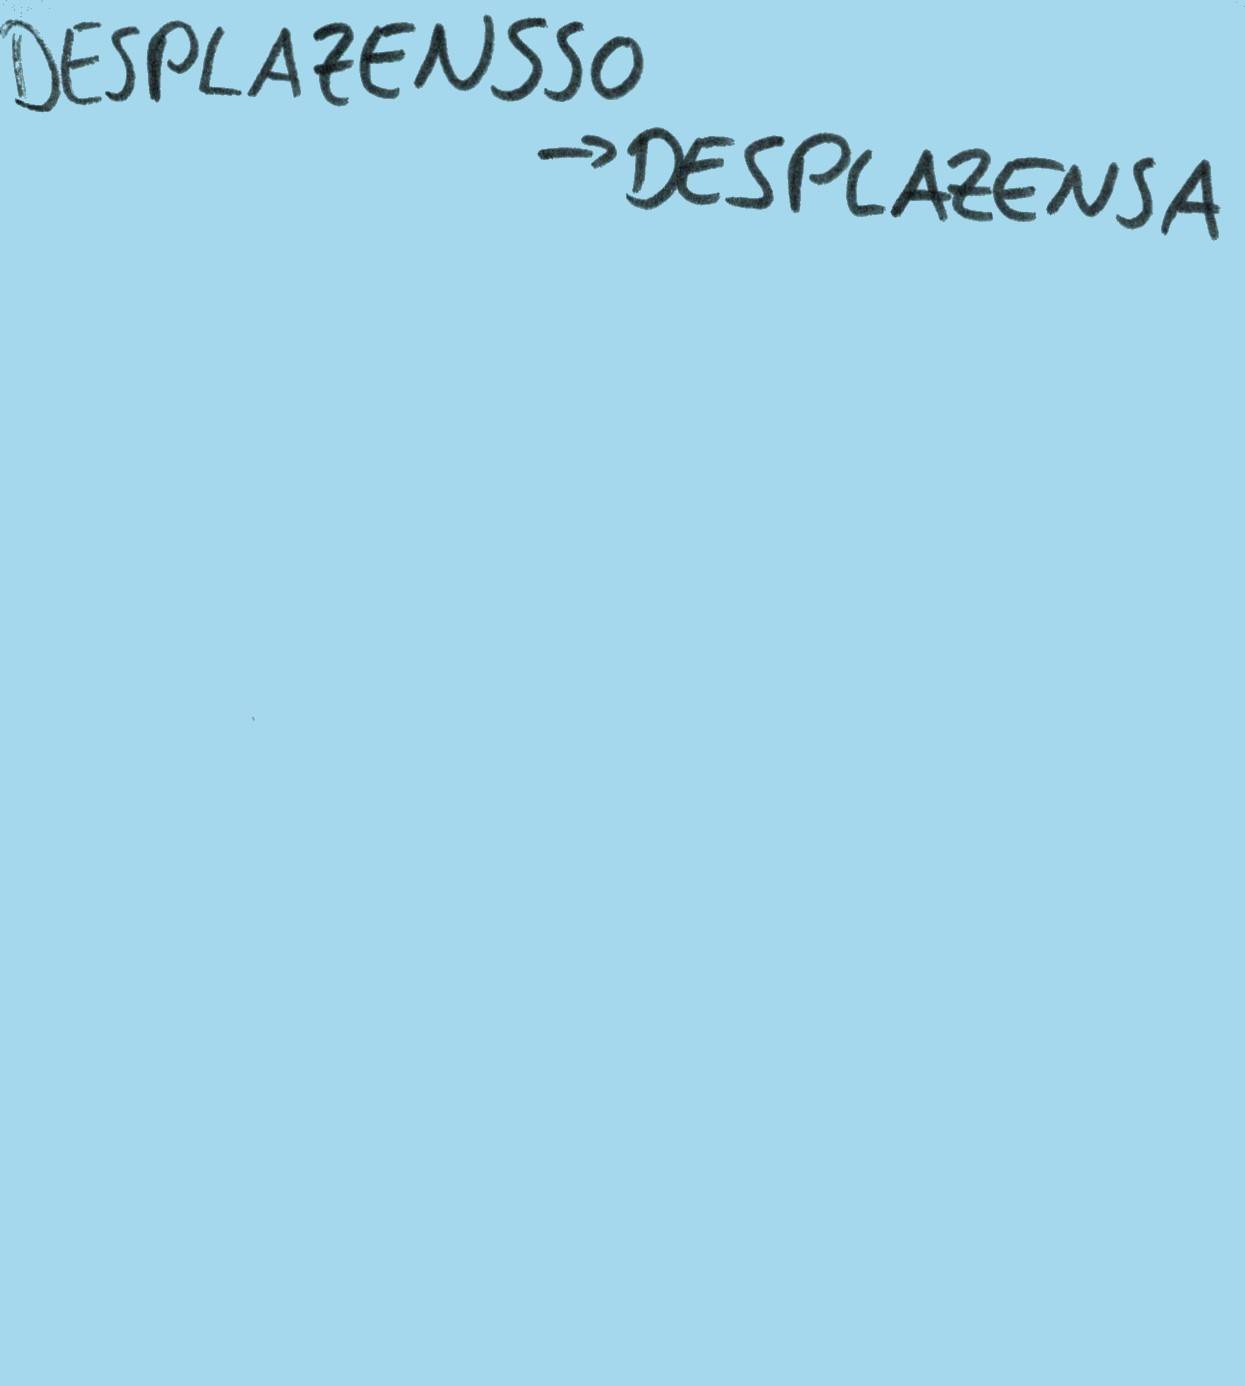 DESPLAZENSSO
→DESPLAZENSA